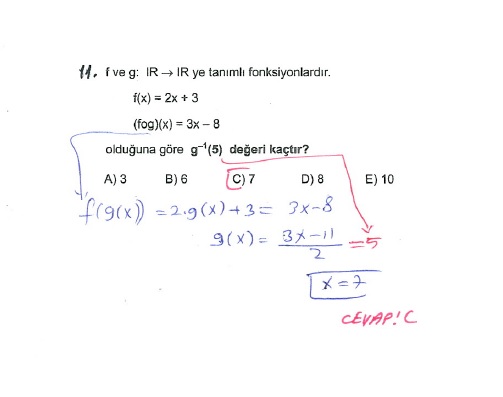 11. f ve g: IR → IR ye tanımlı fonksiyonlardır.
f(x) = 2x + 3
(fog)(x) = 3x – 8
olduğuna göre g⁻¹(5) değeri kaçtır?
A) 3 B) 6 C) 7 D) 8 E) 10
f(g(x)) = 2.g(x)+3 = 3x-8
g(x) = (3x-11)/2 = 5
x = 7
CEVAP! C